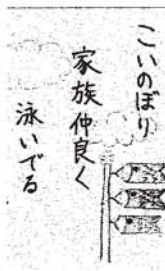 こいのぼり
家族仲良く
泳いでる